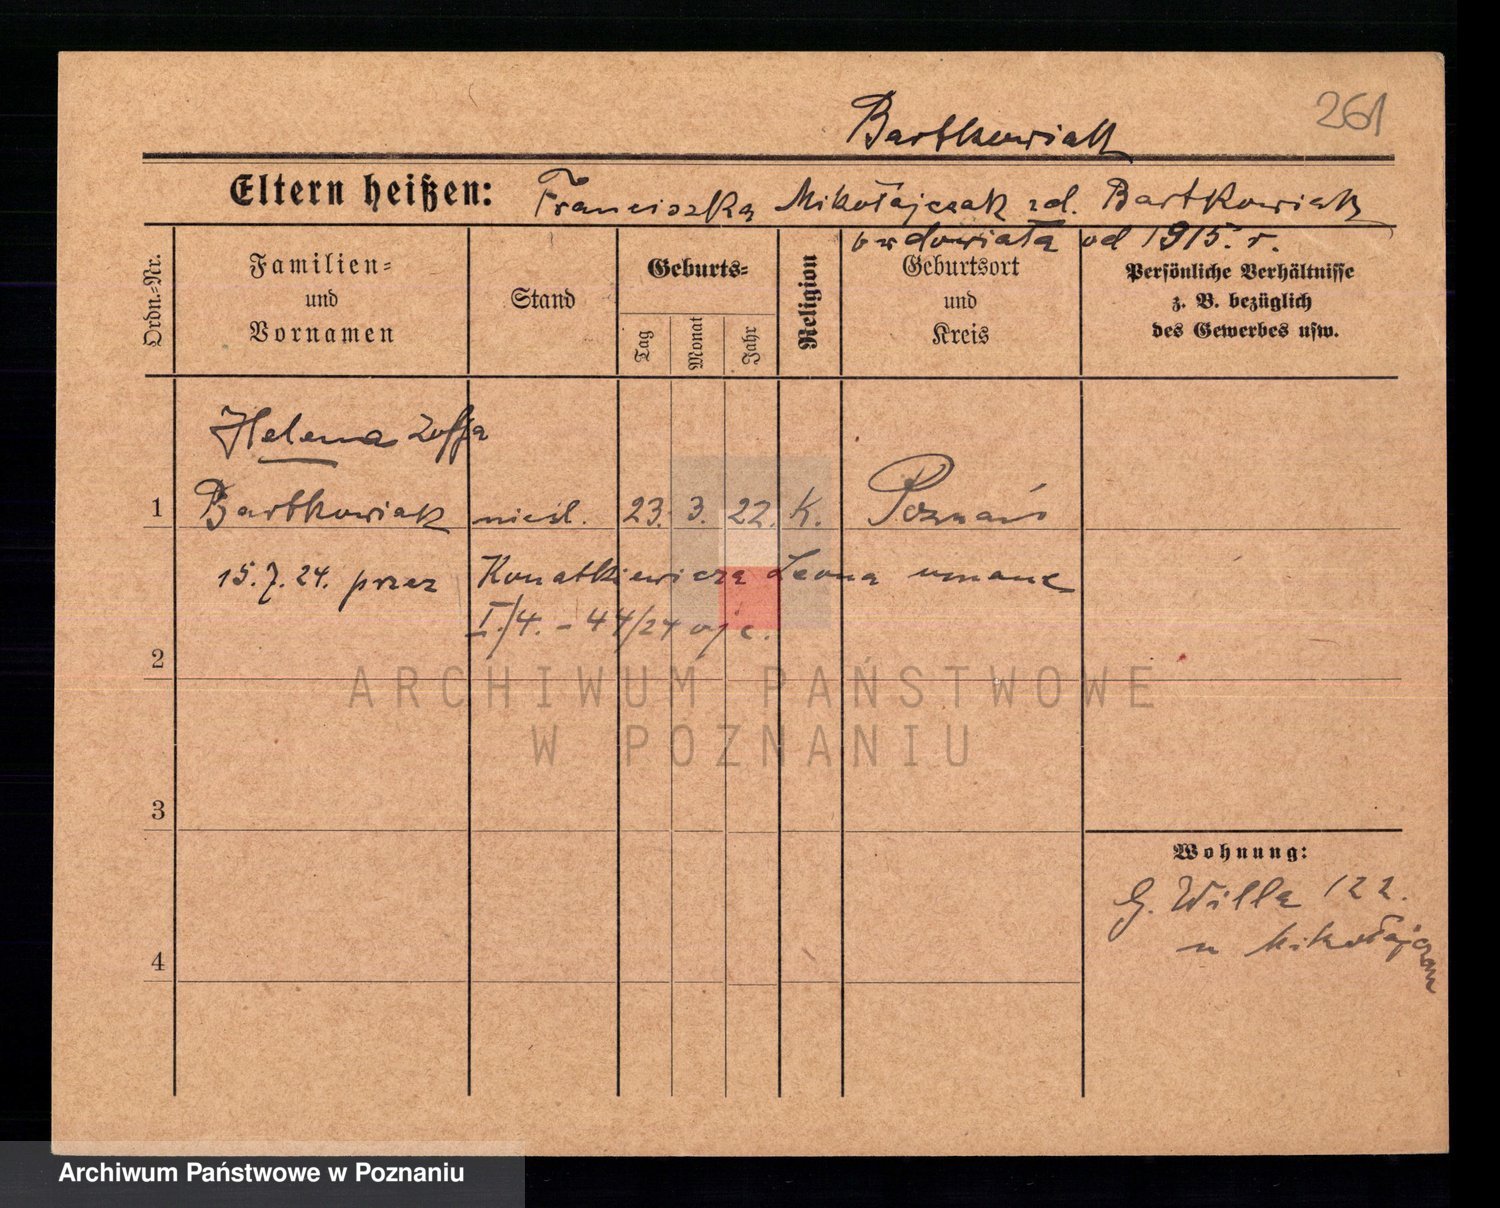 261
Bartkowiak
Eltern heißen: Franciszka Mikołajczak zd. Bartkowiak
owdowiała od 1915. r.
Ordn.-Nr.
Familien-
und
Vornamen
Stand
Geburts-
Tag
Monat
Jahr
Religion
Geburtsort
und
Kreis
Persönliche Verhältnisse
z. B. bezüglich
des Gewerbes usw.
Helena Zofja
1 Bartkowiak nieśl. 23. 3. 22. K. Poznań
15.7.24. przez Konatkiewicza Leona uznane
I./4. - 44/24 ojc.
2
ARCHIWUM PAŃSTWOWE
W POZNANIU
3
Wohnung:
G. Wilda 122.
u Mikołajczak
4
Archiwum Państwowe w Poznaniu